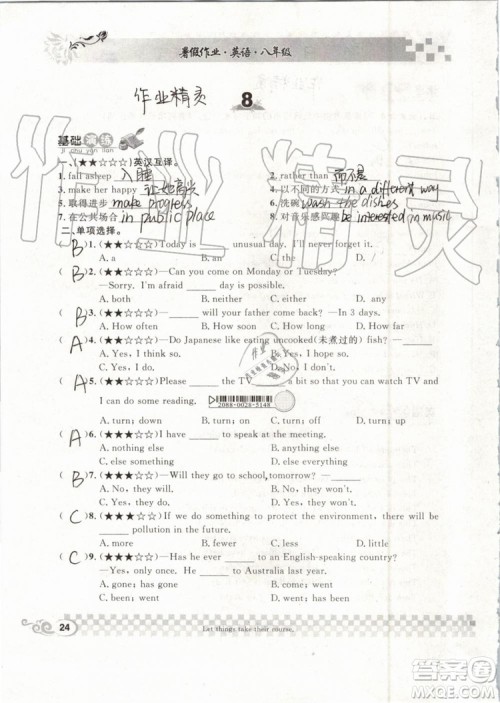 暑假作业·英语·八年级
作业精灵
8
基础演练
ji chu yan lian
一、(★★☆☆☆)英汉互译。
1. fall asleep 入睡
2. rather than 而不是
3. make her happy 让她高兴
4. 以不同的方式 in a different way
5. 取得进步 make progress
6. 洗碗 wash the dishes
7. 在公共场合 in public place
8. 对音乐感兴趣 be interested in music
二、单项选择。
( B )1. (★★☆☆☆)Today is ______ unusual day. I'll never forget it.
A. a B. an C. the D. /
( B )2. (★★★☆☆)—Can you come on Monday or Tuesday?
—Sorry. I'm afraid ______ day is possible.
A. both B. neither C. either D. any
( B )3. (★★★☆☆)— ______ will your father come back? —In 3 days.
A. How often B. How soon C. How long D. How far
( A )4. (★★★☆☆)—Do Japanese like eating uncooked(未煮过的) fish? —______
A. Yes, I think so. B. Yes, I hope so.
C. No, I think so. D. No, I hope not.
( A )5. (★★★☆☆)Please ______ the TV ______ a bit so that you can watch TV and
I can do some reading.
2088-0028-5148
A. turn; down B. turn; on C. turn; off D. turn; up
( A )6. (★★★☆☆)I have ______ to speak at the meeting.
A. nothing else B. anything else
C. else something D. else anything
( B )7. (★★★☆☆)—Will they go to school tomorrow? —______
A. No, they will. B. No, they won't.
C. Yes, they do. D. Yes, they won't.
( C )8. (★★★☆☆)If we do something to protect the environment, there will be
______ pollution in the future.
A. more B. fewer C. less D. little
( C )9. (★★★☆☆)—Has he ever ______ to an English-speaking country?
—Yes. He ______ to Australia last year.
A. gone; has gone B. gone; went
C. been; went D. been; has gone
24
Let things take their course.
作业精灵
答案圈
MXQE.COM